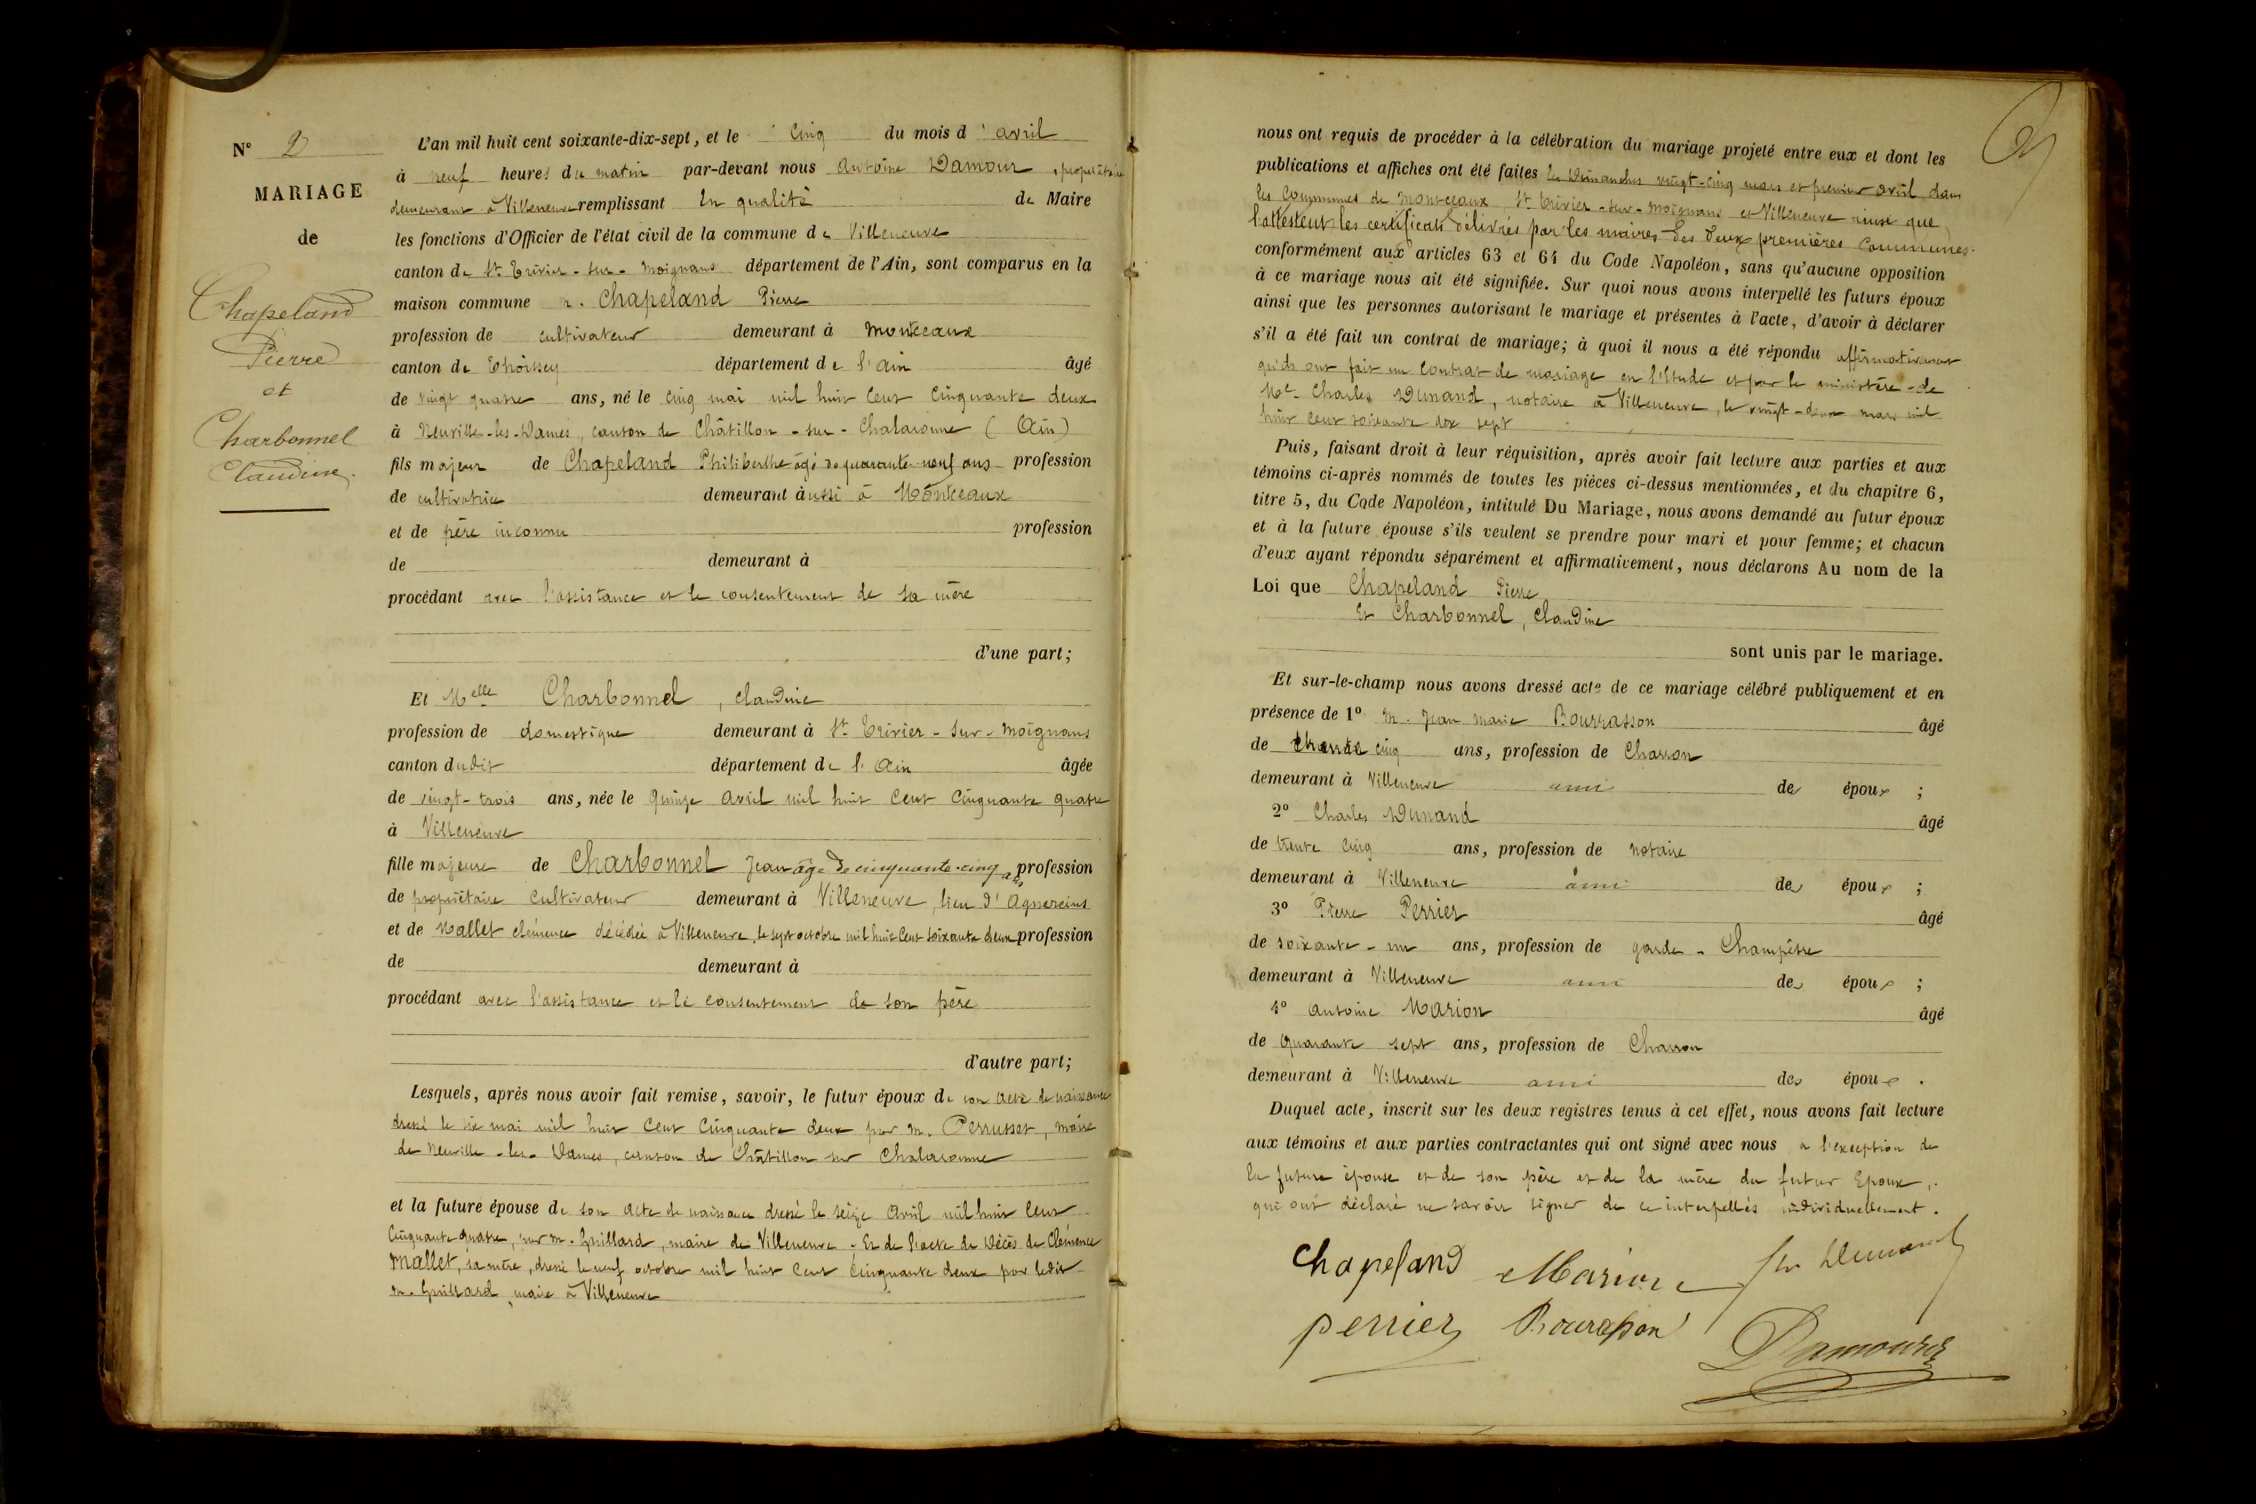 N° 2
MARIAGE
de
Chapeland
Pierre
et
Charbonnel
Claudine.
L'an mil huit cent soixante-dix-sept, et le cinq du mois d'avril
à neuf heures du matin par-devant nous Antoine Damour, propriétaire
demeurant à Villeneuve remplissant en qualité de Maire
les fonctions d'Officier de l'état civil de la commune de Villeneuve
canton de St Trivier-sur-Moignans département de l'Ain, sont comparus en la
maison commune m. Chapeland Pierre
profession de cultivateur demeurant à Montceaux
canton de Thoissey département de l'ain âgé
de vingt quatre ans, né le cinq mai mil huit cent cinquante deux
à Neuville-les-Dames, canton de Châtillon-sur-Chalaronne (Ain)
fils majeur de Chapeland Philiberthe âgé de quarante-neuf ans profession
de cultivatrice demeurant aussi à Montceaux
et de père inconnu profession
de demeurant à
procédant avec l'assistance et le consentement de sa mère
d'une part;
Et Melle Charbonnel, Claudine
profession de domestique demeurant à St Trivier-sur-Moignans
canton dudit département de l'Ain âgée
de vingt-trois ans, née le quinze avril mil huit cent cinquante quatre
à Villeneuve
fille majeure de Charbonnel Jean âgé de cinquante-cinq ans profession
de propriétaire cultivateur demeurant à Villeneuve, lieu d'Agnereins
et de Mallet clémence décédée à Villeneuve, le sept octobre mil huit cent soixante deux profession
de demeurant à
procédant avec l'assistance et le consentement de son père
d'autre part;
Lesquels, après nous avoir fait remise, savoir, le futur époux de son acte de naissance
dressé le six mai mil huit cent cinquante deux par m. Perrusset, maire
de Neuville-les-Dames, canton de Châtillon sur Chalaronne
et la future épouse de son acte de naissance dressé le seize avril mil huit cent
cinquante quatre, par m. Guillard, maire de Villeneuve. Et de l'acte de décès de Clémence
Mallet, sa mère, dressé le neuf octobre mil huit cent cinquante deux par ledit
m. Guillard, maire à Villeneuve
nous ont requis de procéder à la célébration du mariage projeté entre eux et dont les
publications et affiches ont été faites les dimanches vingt-cinq mars et premier avril dans
les communes de Montceaux, St Trivier-sur-Moignans et Villeneuve ainsi que
l'attestent les certificats délivrés par les maires des deux premières communes
conformément aux articles 63 et 64 du Code Napoléon, sans qu'aucune opposition
à ce mariage nous ait été signifiée. Sur quoi nous avons interpellé les futurs époux
ainsi que les personnes autorisant le mariage et présentes à l'acte, d'avoir à déclarer
s'il a été fait un contrat de mariage; à quoi il nous a été répondu affirmativement
qu'ils ont fait un contrat de mariage en l'étude et par le ministère de
Me Charles Dunand, notaire à Villeneuve, le vingt-deux mars mil
huit cent soixante dix sept
Puis, faisant droit à leur réquisition, après avoir fait lecture aux parties et aux
témoins ci-après nommés de toutes les pièces ci-dessus mentionnées, et du chapitre 6,
titre 5, du Code Napoléon, intitulé Du Mariage, nous avons demandé au futur époux
et à la future épouse s'ils veulent se prendre pour mari et pour femme; et chacun
d'eux ayant répondu séparément et affirmativement, nous déclarons Au nom de la
Loi que Chapeland Pierre
Et Charbonnel, Claudine
sont unis par le mariage.
Et sur-le-champ nous avons dressé acte de ce mariage célébré publiquement et en
présence de 1° m. Jean Marie Bourrasson âgé
de trente cinq ans, profession de Charron
demeurant à Villeneuve ami des époux ;
2° Charles Dunand âgé
de trente cinq ans, profession de notaire
demeurant à Villeneuve ami des époux ;
3° Pierre Perrier âgé
de soixante-un ans, profession de garde-Champêtre
demeurant à Villeneuve ami des époux ;
4° Antoine Marion âgé
de quarante sept ans, profession de Charron
demeurant à Villeneuve ami des époux .
Duquel acte, inscrit sur les deux registres tenus à cet effet, nous avons fait lecture
aux témoins et aux parties contractantes qui ont signé avec nous a l'exception de
la future épouse et de son père et de la mère du futur Epoux,
qui ont déclaré ne savoir signer de ce interpellés individuellement.
Chapeland Marion Dunand
perrier Bourasson Damour